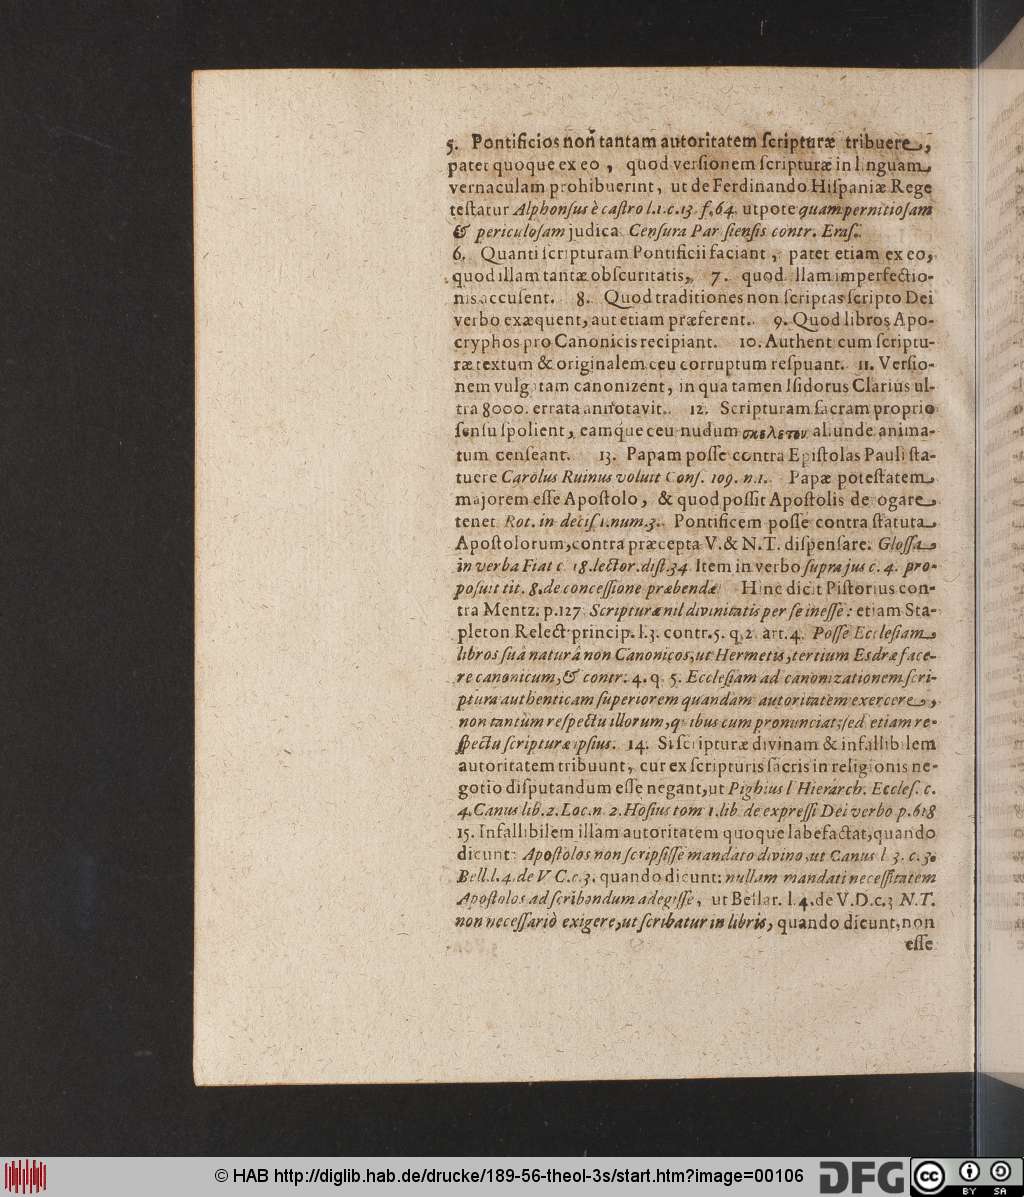 5. Pontificios non tantam autoritatem ſcripturæ tribuere,
patet quoque ex eo, quod verſionem ſcripturæ in linguam
vernaculam prohibuerint, ut de Ferdinando Hiſpaniæ Rege
teſtatur Alphonſus è caſtro l.1.c.13. f.64. utpote quam pernitioſam
& periculoſam judica Cenſura Par ſienſis contr. Eraſ.
6. Quanti ſcripturam Pontificii faciant, patet etiam ex eo,
quod illam tantæ obſcuritatis, 7. quod illam imperfectio-
nis accuſent. 8. Quod traditiones non ſcriptas ſcripto Dei
verbo exæquent, aut etiam præferent. 9. Quod libros Apo-
cryphos pro Canonicis recipiant. 10. Authent cum ſcriptu-
ræ textum & originalem ceu corruptum reſpuant. 11. Verſio-
nem vulgatam canonizent, in qua tamen Iſidorus Clarius ul-
tra 8000. errata annotavit. 12. Scripturam ſacram proprio
ſenſu ſpolient, eamque ceu nudum σκελετον aliunde anima-
tum cenſeant. 13. Papam poſſe contra Epiſtolas Pauli ſta-
tuere Carolus Ruinus voluit Conſ. 109. n.1. Papæ poteſtatem
majorem eſſe Apoſtolo, & quod poſſit Apoſtolis derogare
tenet Rot. in deciſ 1. num.3. Pontificem poſſe contra ſtatuta
Apoſtolorum, contra præcepta V. & N.T. diſpenſare. Gloſſa
in verba Fiat c. 18. lector. diſt. 34 Item in verbo ſupra jus c. 4. pro-
poſuit tit. 8. de conceſſione præbendæ Hinc dicit Piſtorius con-
tra Mentz. p.127 Scripturæ nil divinitatis per ſe ineſſe: etiam Sta-
pleton Relect princip. l.3. contr.5. q.2. art.4. Poſſe Eccleſiam
libros ſuâ naturâ non Canonicos, ut Hermetis, tertium Esdræ face-
re canonicum, & contr. 4. q. 5. Eccleſiam ad canonizationem ſcri-
ptura authenticam ſuperiorem quandam autoritatem exercere,
non tantùm reſpectu illorum, quibus cum pronunciat; ſed etiam re-
ſpectu ſcripturæ ipſius. 14. Si ſcripturæ divinam & infallibilem
autoritatem tribuunt, cur ex ſcripturis ſacris in religionis ne-
gotio diſputandum eſſe negant, ut Pighius l Hierarch. Eccleſ. c.
4. Canus lib. 2. Loc. n. 2. Hoſius tom 1. lib de expreſſi Dei verbo p.618
15. Infallibilem illam autoritatem quoque labefactat, quando
dicunt: Apoſtolos non ſcripſiſſe mandato divino, ut Canus l 3. c. 3.
Bell. l. 4. de V C. c. 3. quando dicunt: nullam mandati neceſſitatem
Apoſtolos ad ſcribendum adegiſſe, ut Bellar. l. 4. de V.D.c.3 N.T.
non neceſſariò exigere, ut ſcribatur in libris, quando dicunt, non
eſſe
© HAB http://diglib.hab.de/drucke/189-56-theol-3s/start.htm?image=00106
DFG
cc BY SA